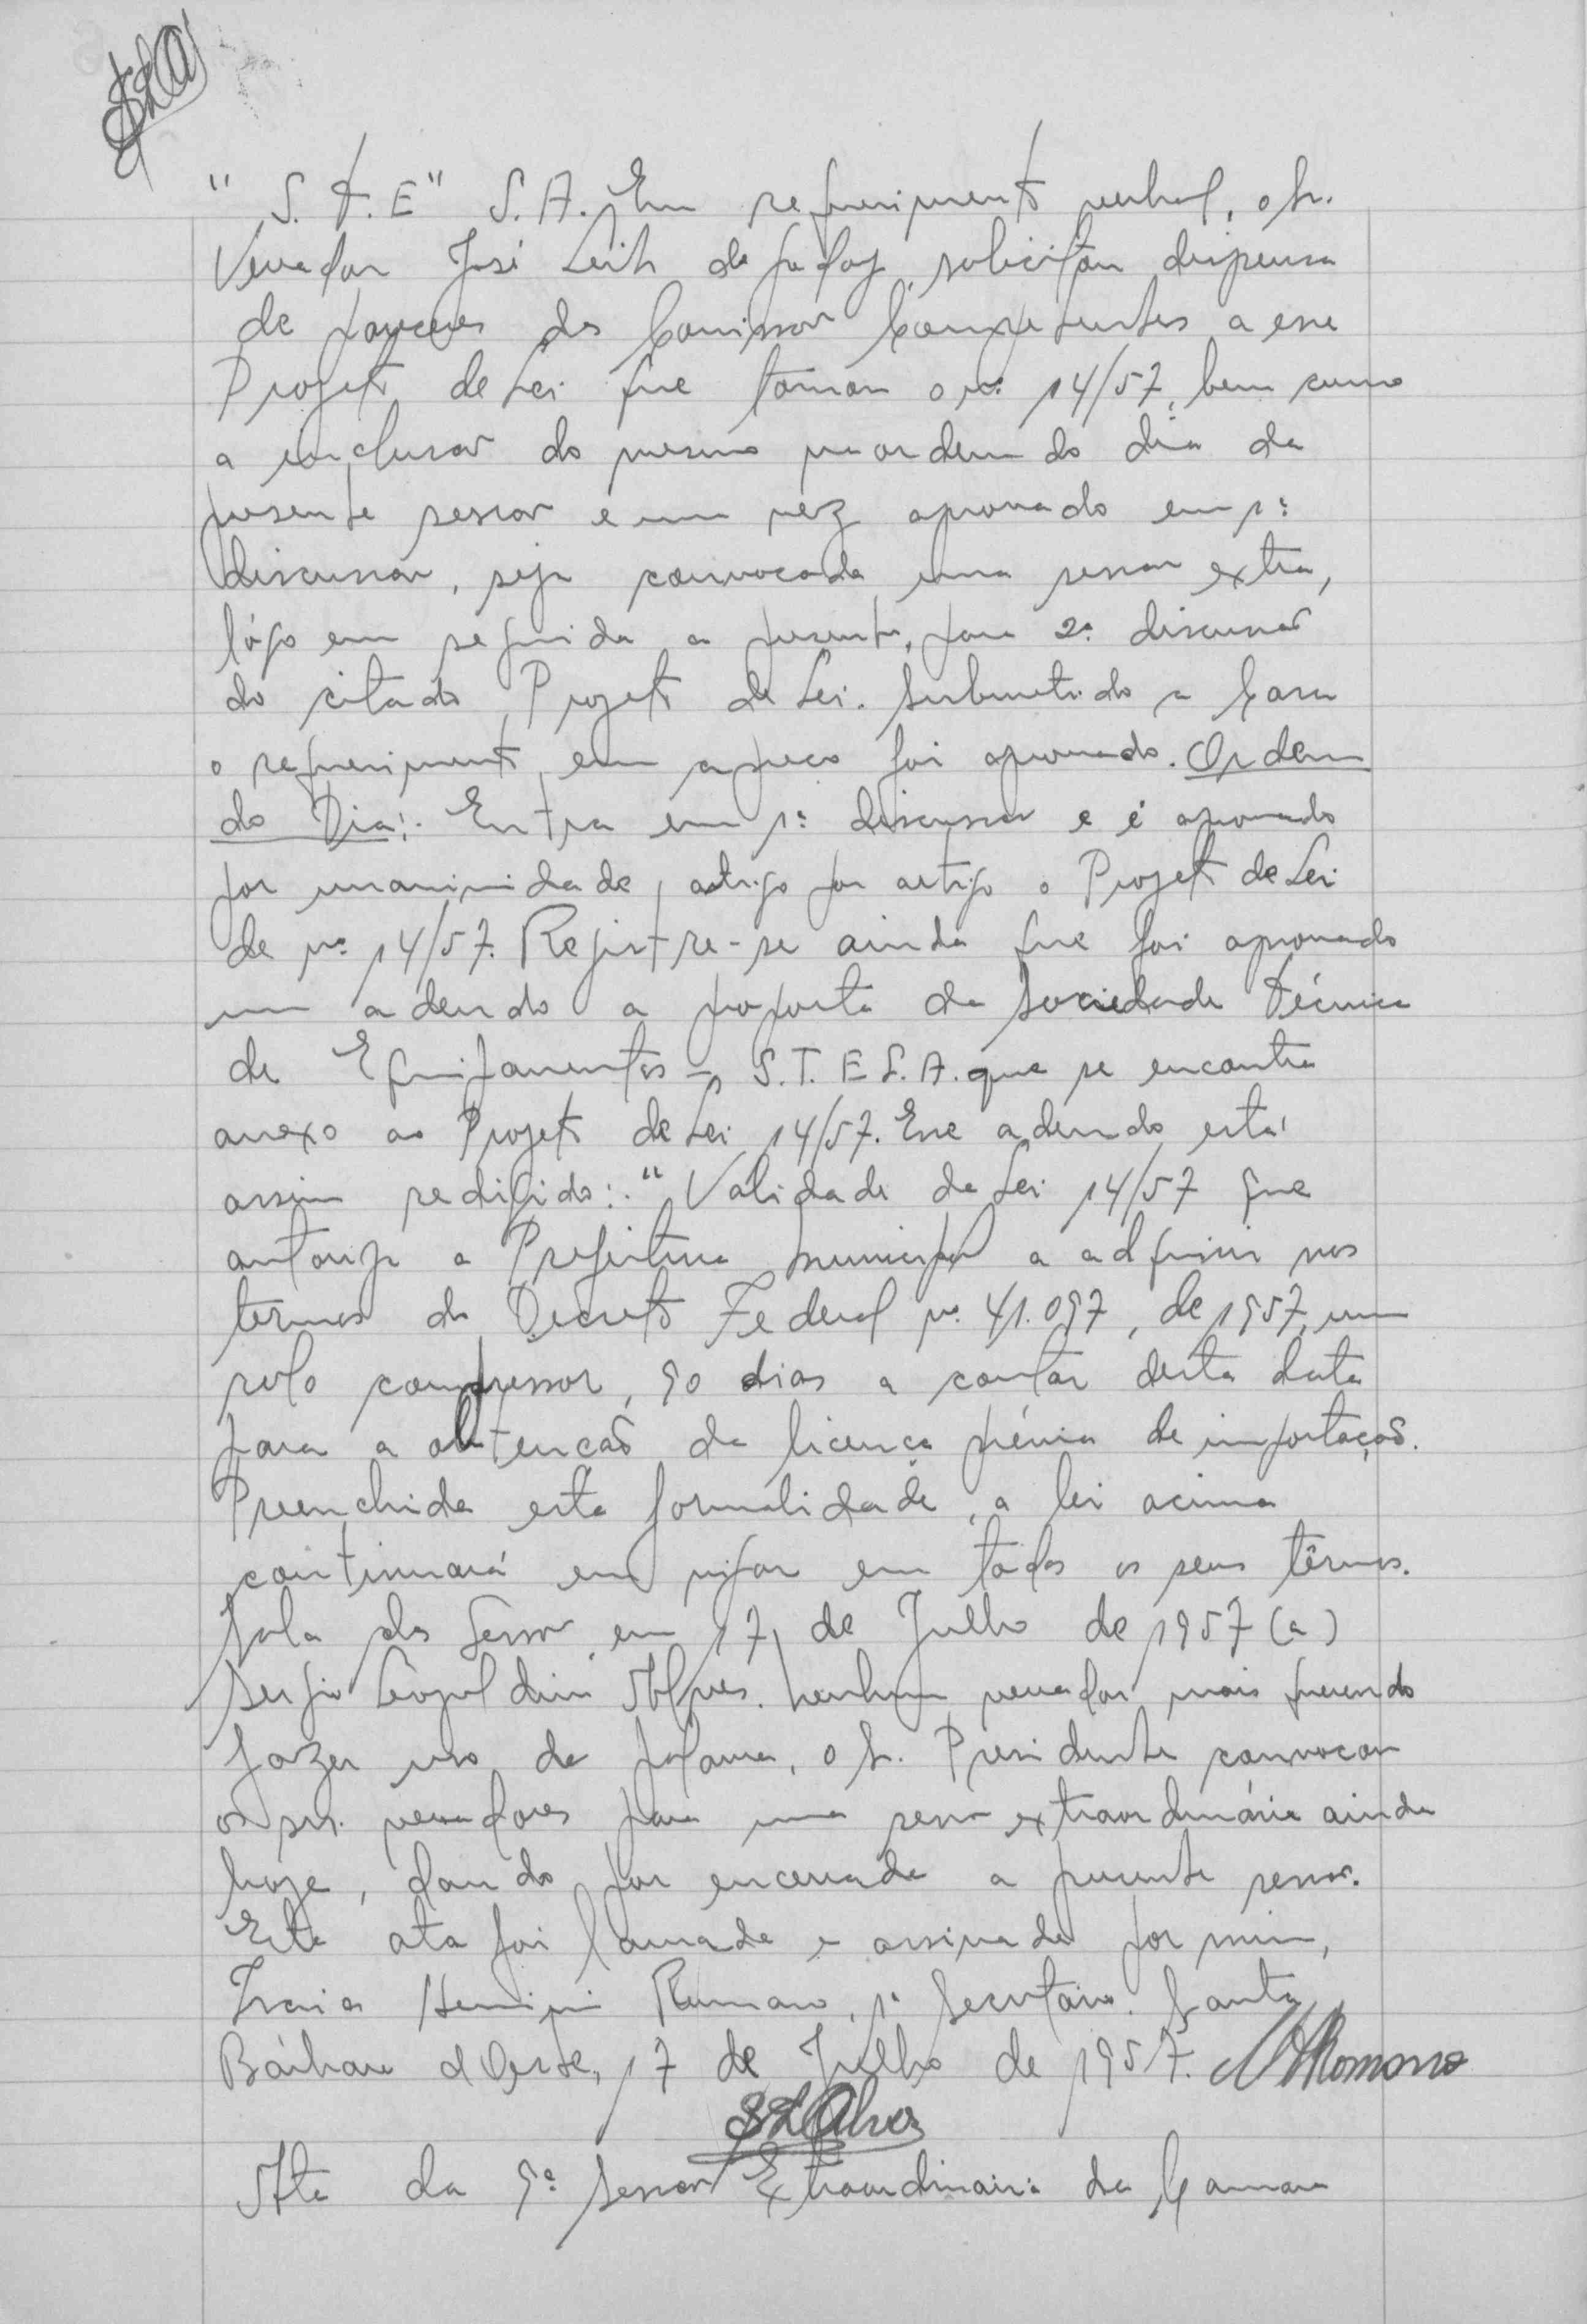 "S.T.E" S.A. Em requerimento verbal, o Sr.
Vereador José Leite de Godoy, solicitou dispensa
de pareceres das Comissões Competentes a esse
Projeto de Lei que tomou o nº 14/57, bem como
a inclusão do mesmo na ordem do dia da
presente sessão e uma vez aprovado em 1ª
discussão, seja convocada uma sessão extra,
lógo em seguida a presente, para 2ª discussão
do citado Projeto de Lei. Submetido a Casa
o requerimento em apreço foi aprovado. Ordem
do Dia:. Entra em 1ª discussão e é aprovado
por unanimidade, artigo por artigo o Projeto de Lei
de nº 14/57. Registre-se ainda que foi aprovado
um adendo a proposta da Sociedade Técnica
de Equipamentos - S.T.E S.A. que se encontra
anexo ao Projeto de Lei 14/57. Esse adendo está
assim redigido:. "Validade da Lei 14/57 que
autoriza a Prefeitura Municipal a adquirir nos
termos do Decreto Federal nº 41.097, de 1957, um
rolo compressor, 90 dias a contar desta data
para a obtenção da licença prévia de importação.
Preenchida esta formalidade, a lei acima
continuará em vigor em todos os seus têrmos.
Sala das Sessões, em 17 de Julho de 1957 (a)
Sergio Leopoldino Alves. Nenhum vereador mais querendo
fazer uso da palavra, o Sr. Presidente convocou
os srs. vereadores para uma sessão extraordinária ainda
hoje, dando por encerrada a presente sessão.
Esta ata foi lavrada e assinada por mim,
Romano, 1º Secretário. Santa
Bárbara d'Oeste, 17 de Julho de 1957. Romano
SLAlves
Ata da 9ª Sessão Extraordinária da Camara